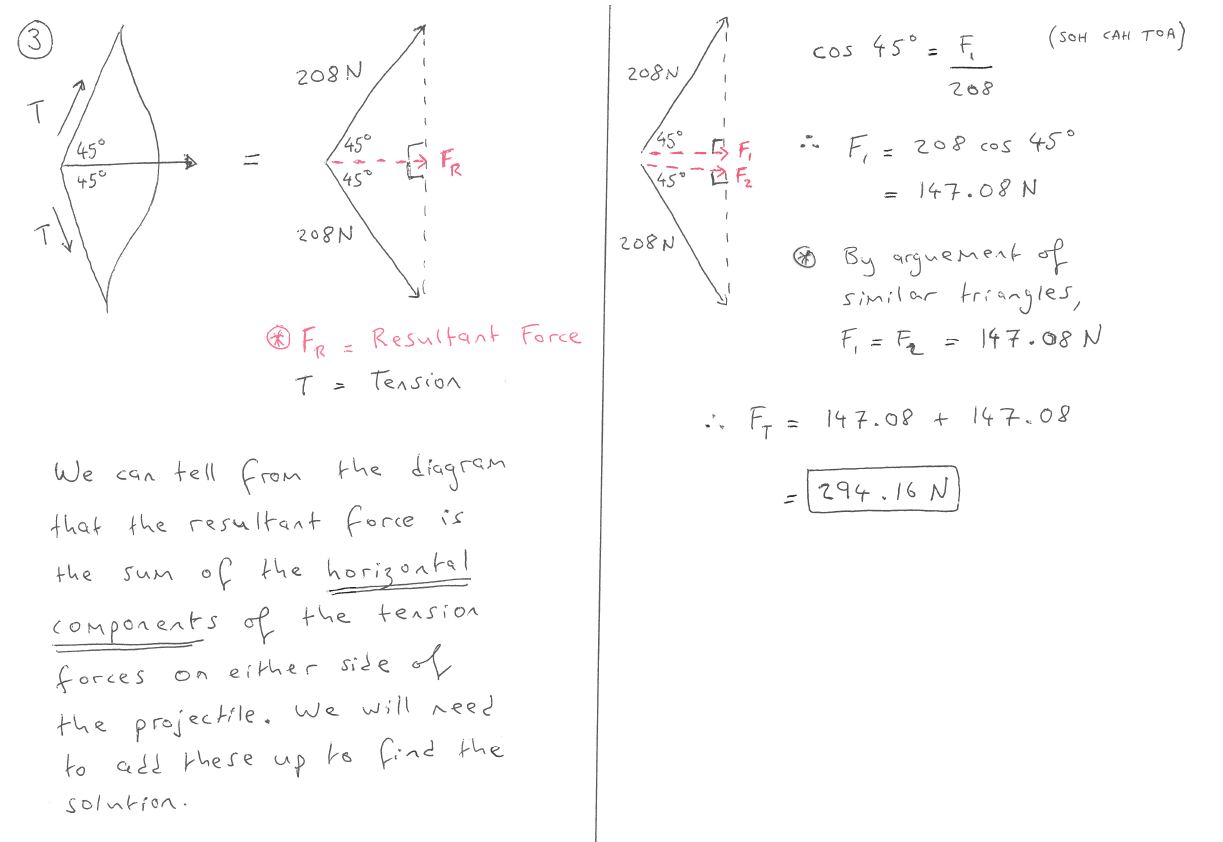 3
T
45°
45°
T
=
208N
45°
45°
F_R
208N
⊛ F_R = Resultant Force
T = Tension
We can tell from the diagram
that the resultant force is
the sum of the horizontal
components of the tension
forces on either side of
the projectile. We will need
to add these up to find the
solution.
208N
45°
45°
F_1
F_2
208N
cos 45° = F_1 / 208 (SOH CAH TOA)
∴ F_1 = 208 cos 45°
= 147.08 N
⊛ By arguement of
similar triangles,
F_1 = F_2 = 147.08 N
∴ F_T = 147.08 + 147.08
= 294.16 N